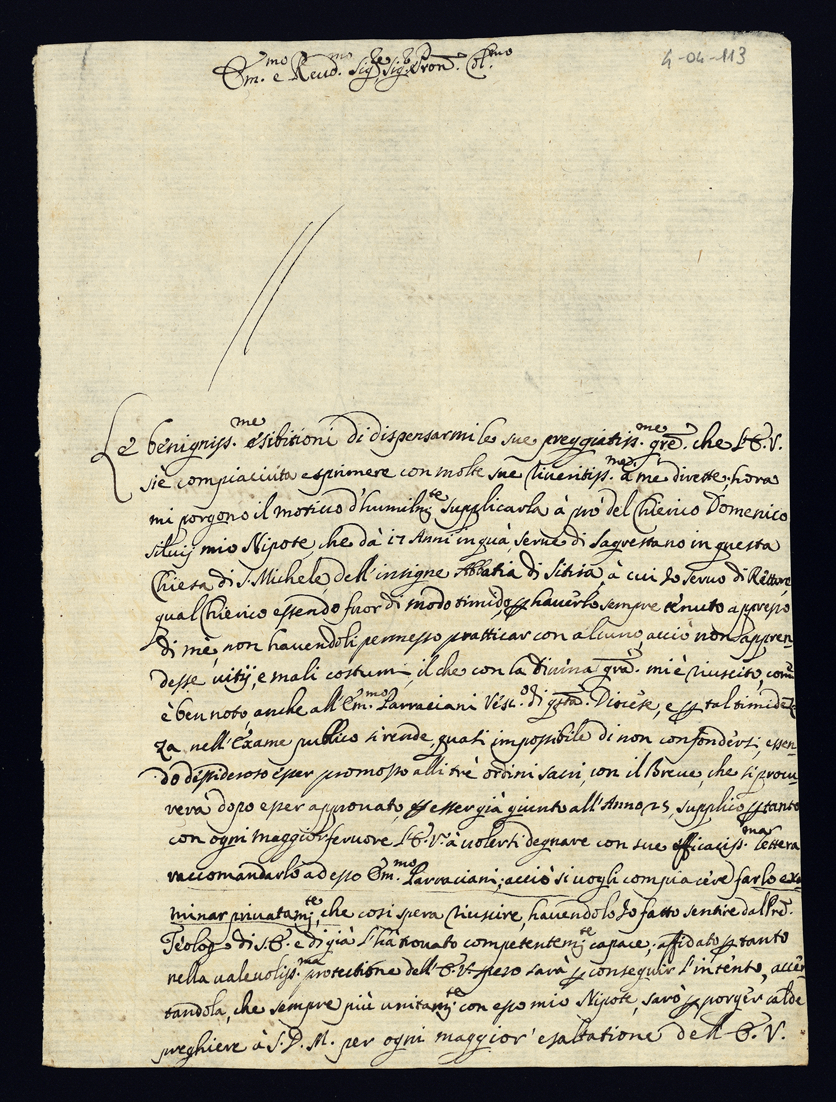 Em.mo e Reud.mo Sig.re Sig.re Pron. Col.mo
4-04-113
Le benigniss.me esibitioni di dispensarmi le sue preggiatiss.me gre. che l'E.V.
s'è compiaciuta esprimere con molte sue riueritiss.me à me dirette, hora
mi porgono il motiuo d'humilm.te supplicarla à pro del Chierico Domenico
Siluij mio Nipote che dà 17 Anni in quà, serue di Sagrestano in questa
Chiesa di S. Michele, dell'insigne Abbatia di Sitria, à cui Io seruo di Rettore,
qual Chierico essendo fuor di modo timido, p hauerlo sempre tenuto appresso
di mè, non hauendoli permesso pratticar con alcuno, acciò non appren-
desse uitij, e mali costumi, il che con la Diuina gra. mi è riuscito, come
è ben noto, anche all'Em.mo Parraciani Vesc.o di qsta. Diocese, e p tal timidez-
za nell'Exame publico si rende, quasi impossibile di non confondersi, essen-
do dessideroso esser promosso alli trè ordini sacri, con il Breue, che si procu-
rerà dopo esser approuato, p esser già giunto all'Anno 25, supplico p tanto
con ogni maggior feruore l'E.V. à uolersi degnare con sue efficaciss.ma lettera
raccomandarlo ad esso Em.mo Parraciani, acciò si uogli compiacere farlo exa-
minar priuatam.te, che così spera riuscire, hauendolo Io fatto sentire dal Pre.
Teologo di S.E. e di già l'hà trouato competentem.te capace; affidato p tanto
nella ualeuoliss.ma protectione dell'E.V. spero sarà p conseguir l'intento, accer-
tandola, che sempre più unitam.te con esso mio Nipote, sarò p porger calde
preghiere à S.D.M. per ogni maggior esaltatione dell'E.V.